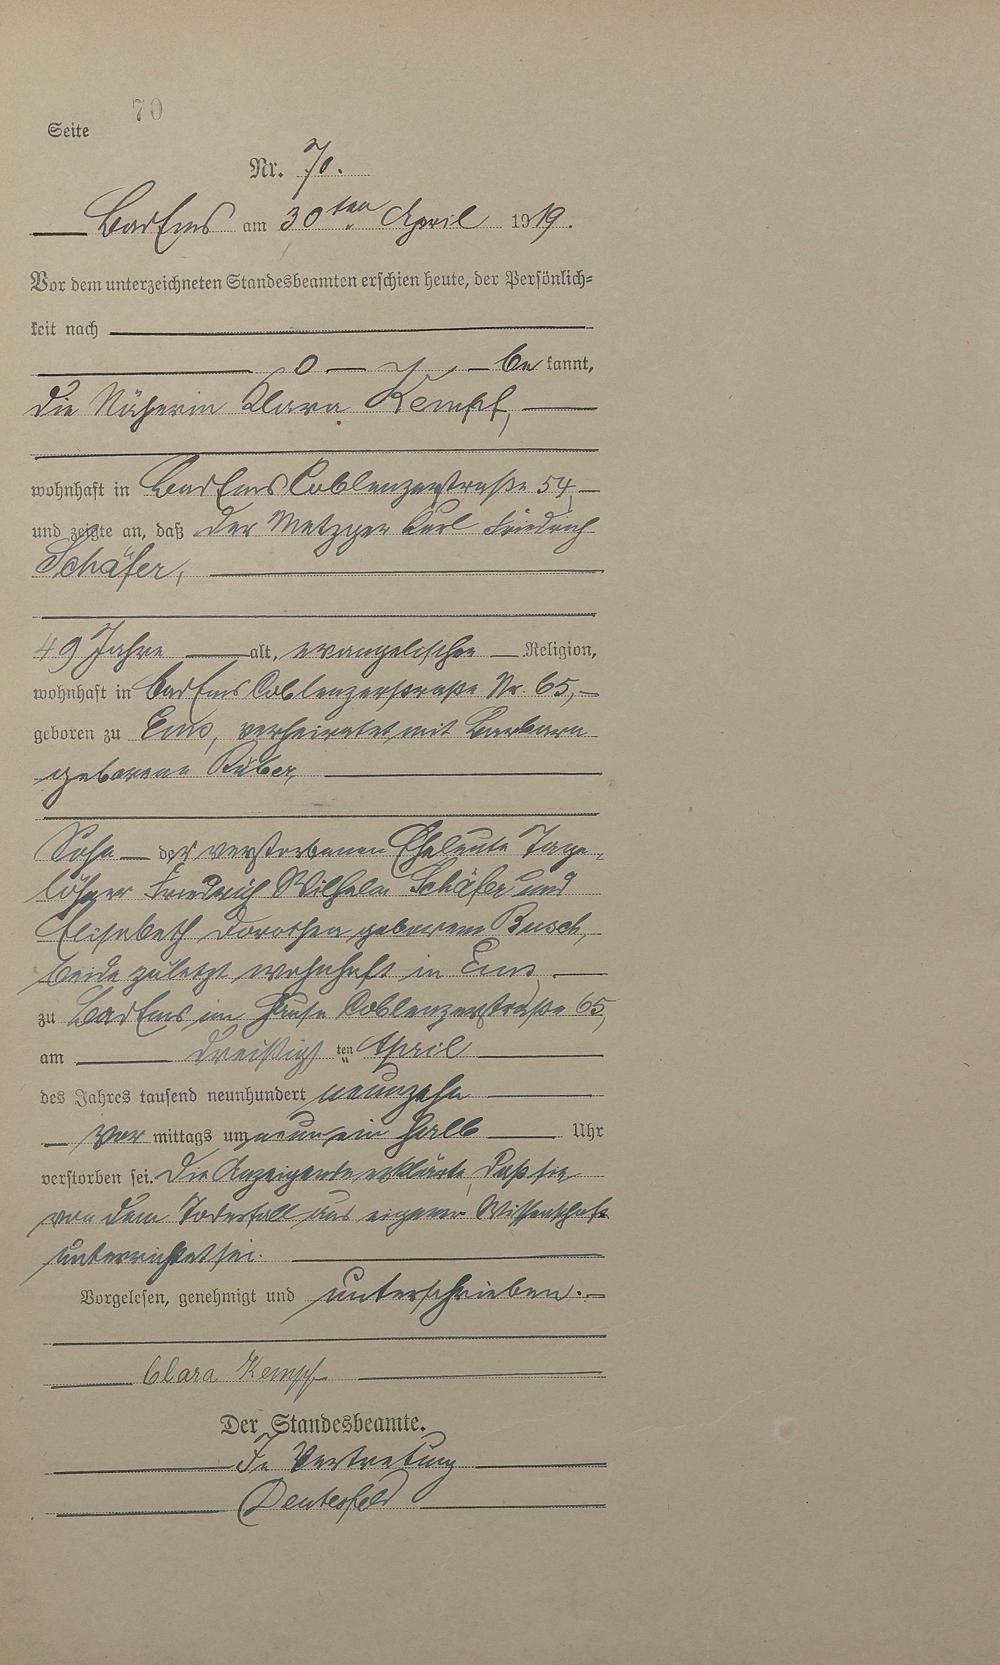 70
Seite
Nr. 70.
Bad Ems am 30ten April 1919.
Vor dem unterzeichneten Standesbeamten erschien heute, der Persönlich-
keit nach
be kannt,
die Näherin Klara Kempf,
wohnhaft in Bad Ems Coblenzerstraße 54
und zeigte an, daß der Metzger Karl Friedrich
Schäfer,
49 Jahre alt, evangelischer Religion,
wohnhaft in Bad Ems Coblenzerstraße Nr. 65,
geboren zu Ems, verheiratet mit Barbara
geborene Rüber,
Sohn der verstorbenen Eheleute Tage-
löhner Friedrich Wilhelm Schäfer und
Elisabeth Dorothea geborene Busch,
beide zuletzt wohnhaft in Ems
zu Bad Ems im Hause Coblenzerstraße 65,
am dreißigs ten April
des Jahres tausend neunhundert neunzehn
Vor mittags um neun ein halb Uhr
verstorben sei. Die Anzeigende erklärte, daß sie
von dem Todesfall aus eigener Wissenschaft
unterrichtet sei.
Vorgelesen, genehmigt und unterschrieben.
Clara Kempf
Der Standesbeamte.
In Vertretung